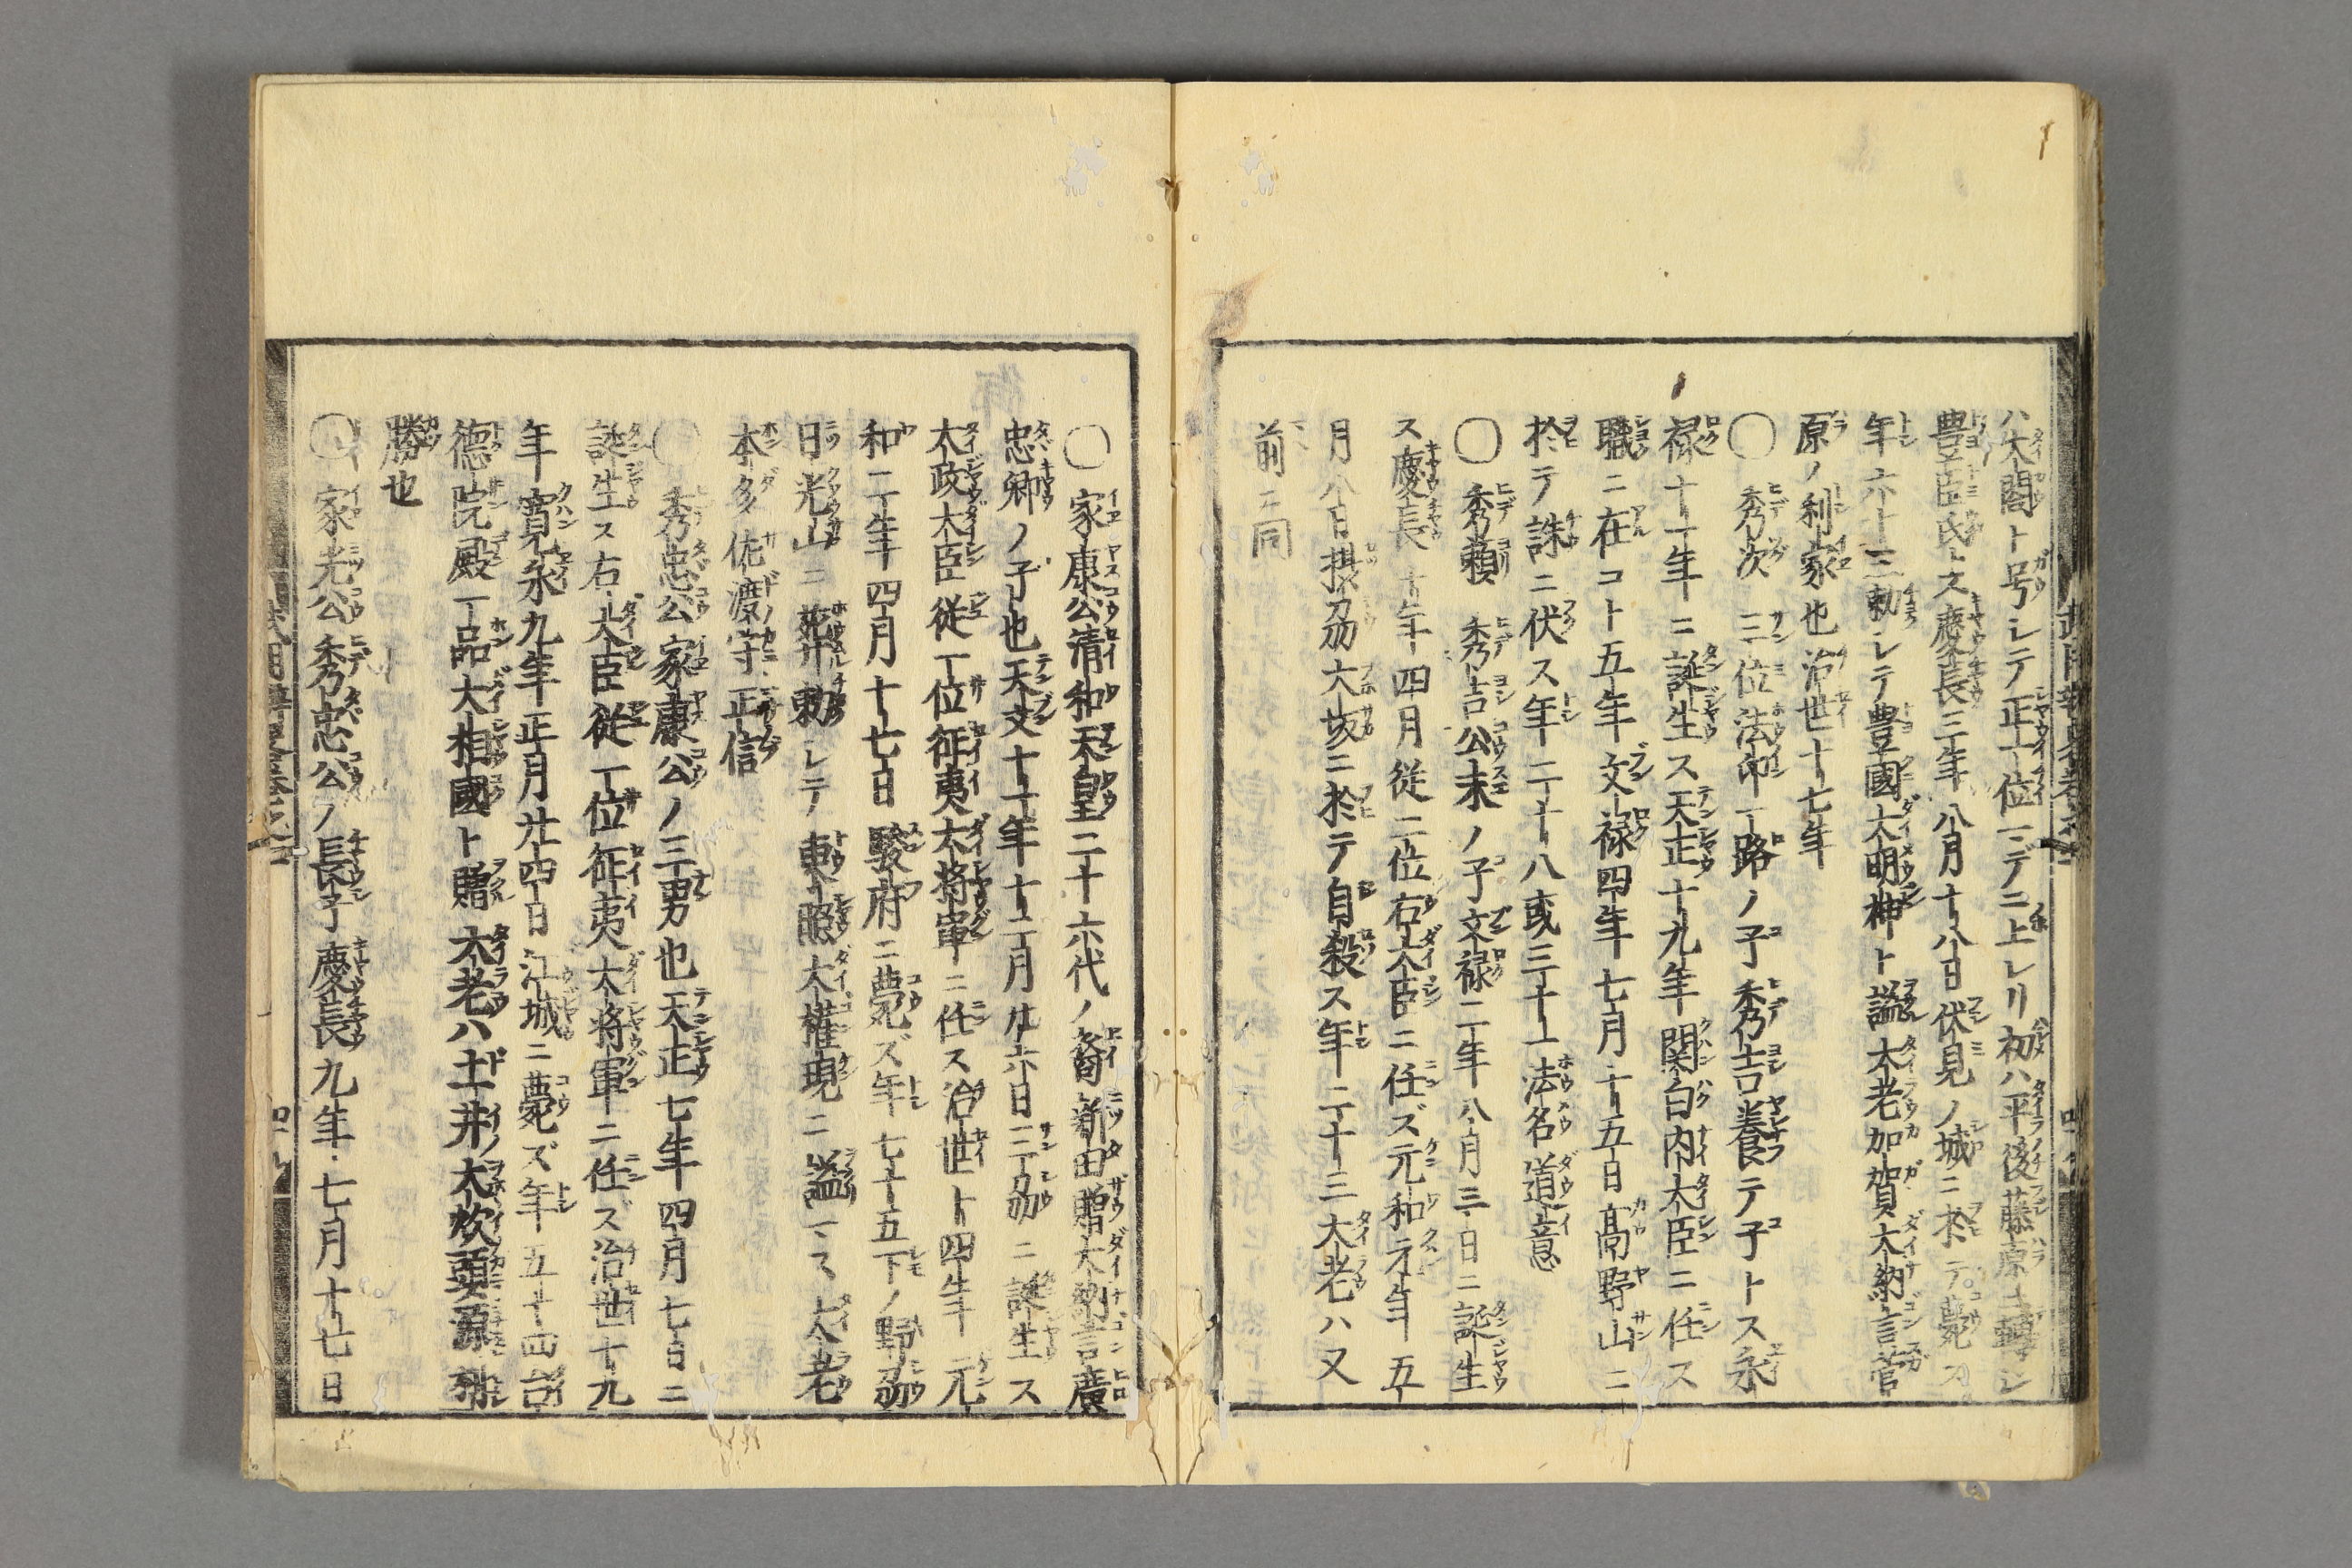 ハ太閤ト号シテ正一位マデニ上レリ初ハ平後藤原ニ轉シ
豊臣氏トス慶長三年八月十八日伏見ノ城ニ於テ薨ス
年六十三勅シテ豊國大明神ト謚大老加賀大納言菅
原ノ利家也治世十七年
〇秀次 三位法印一路ノ子秀吉養テ子トス永
禄十一年ニ誕生ス天正十九年関白内大臣ニ任ス
職ニ在コト五年文禄四年七月十五日高野山ニ
於テ誅ニ伏ス年二十八或三十一法名道意
〇秀頼 秀吉公末ノ子文禄二年八月三日ニ誕生
ス慶長十年四月従二位右大臣ニ任ズ元和元年五
月八日摂刕大坂ニ於テ自殺ス年二十三大老ハ又
前ニ同
〇家康公清和天皇二十六代ノ裔新田贈大納言廣
忠卿ノ子也天文十一年十二月廿六日三刕ニ誕生ス
太政大臣従一位征夷大将軍ニ任ス治世十四年元
和二年四月十七日駿府ニ薨ズ年七十五下ノ野刕
日光山ニ葬勅シテ東照大権現ニ謚マス大老
本多佐渡守正信
〇秀忠公家康公ノ三男也天正七年四月七日ニ
誕生ス右大臣従一位征夷大将軍ニ任ズ治世十九
年寛永九年正月廿四日江城ニ薨ズ年五十四台
徳院殿一品大相國ト贈大老ハ土井大炊頭源利
勝也
〇家光公秀忠公ノ長子慶長九年七月十七日